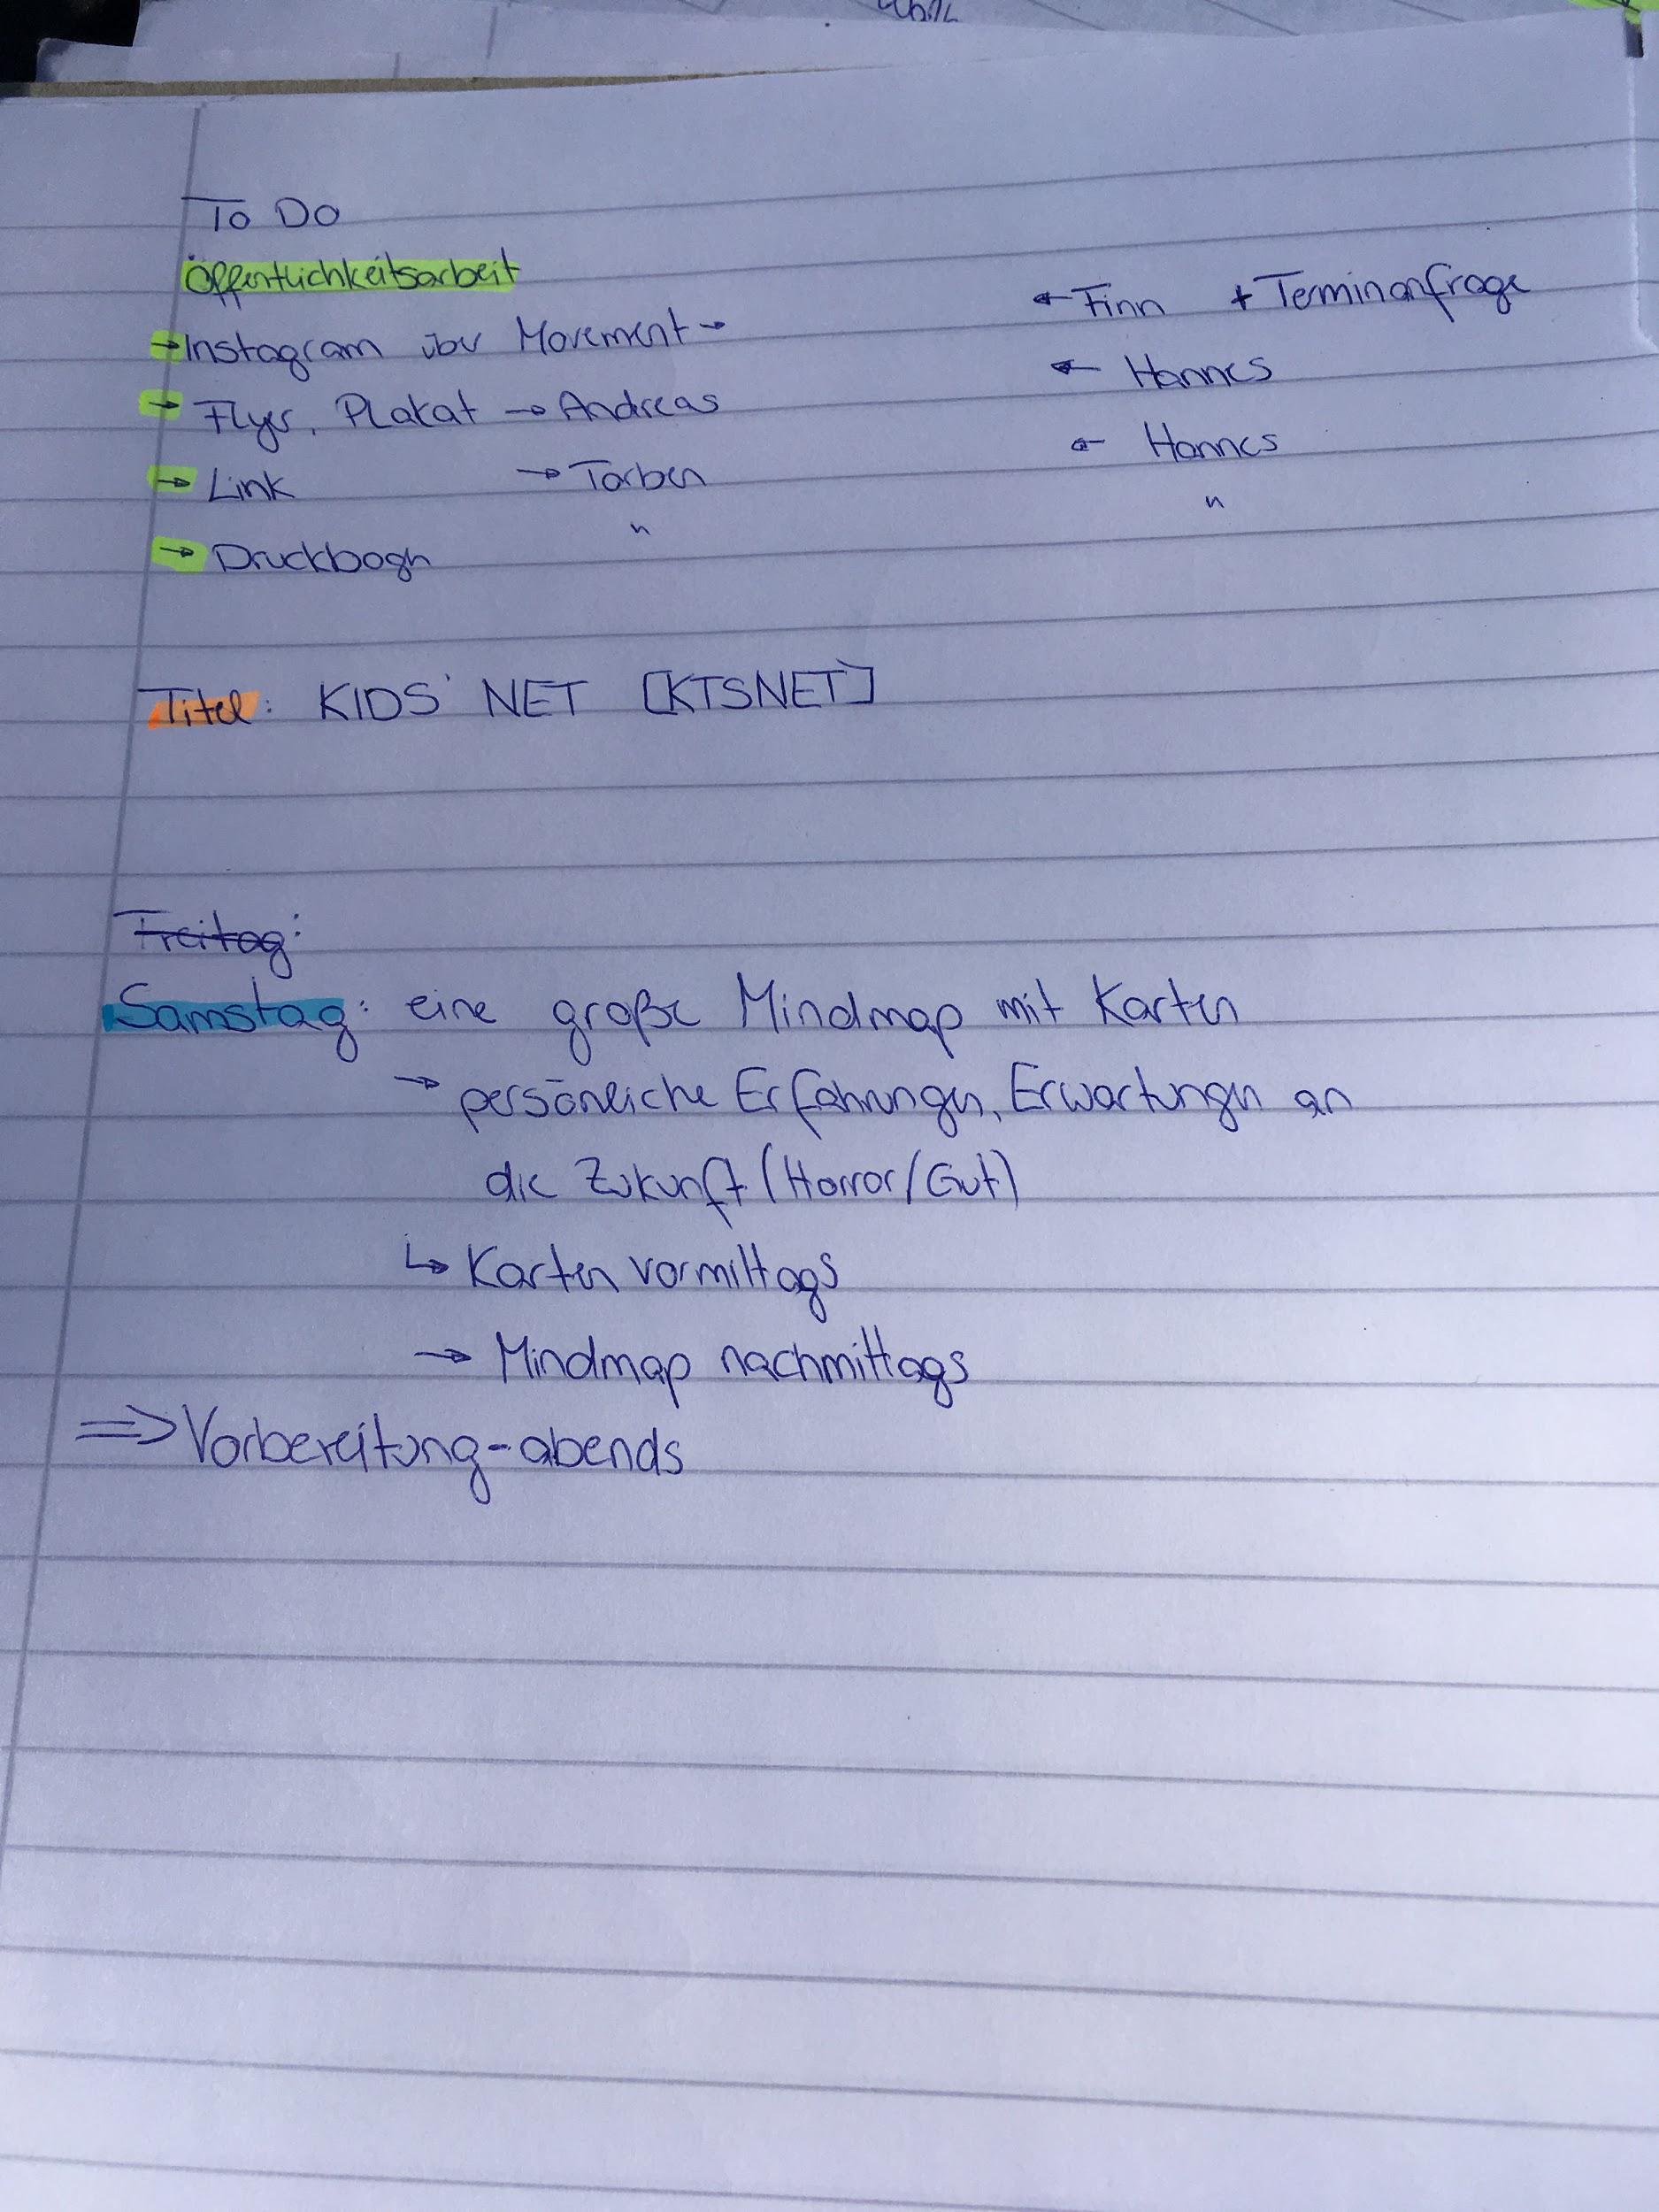 To Do
Öffentlichkeitsarbeit
→ Instagram über Movement → ← Finn + Terminanfrage
→ Flyer, Plakat → Andreas ← Hannes
→ Link → Torben ← Hannes
→ Druckbogn " "
Titel: KIDS' NET [KTSNET]
Freitag:
Samstag: eine große Mindmap mit Karten
→ persönliche Erfahrungen, Erwartungen an
die Zukunft (Horror/Gut)
↳ Karten vormittags
→ Mindmap nachmittags
⇒ Vorbereitung-abends